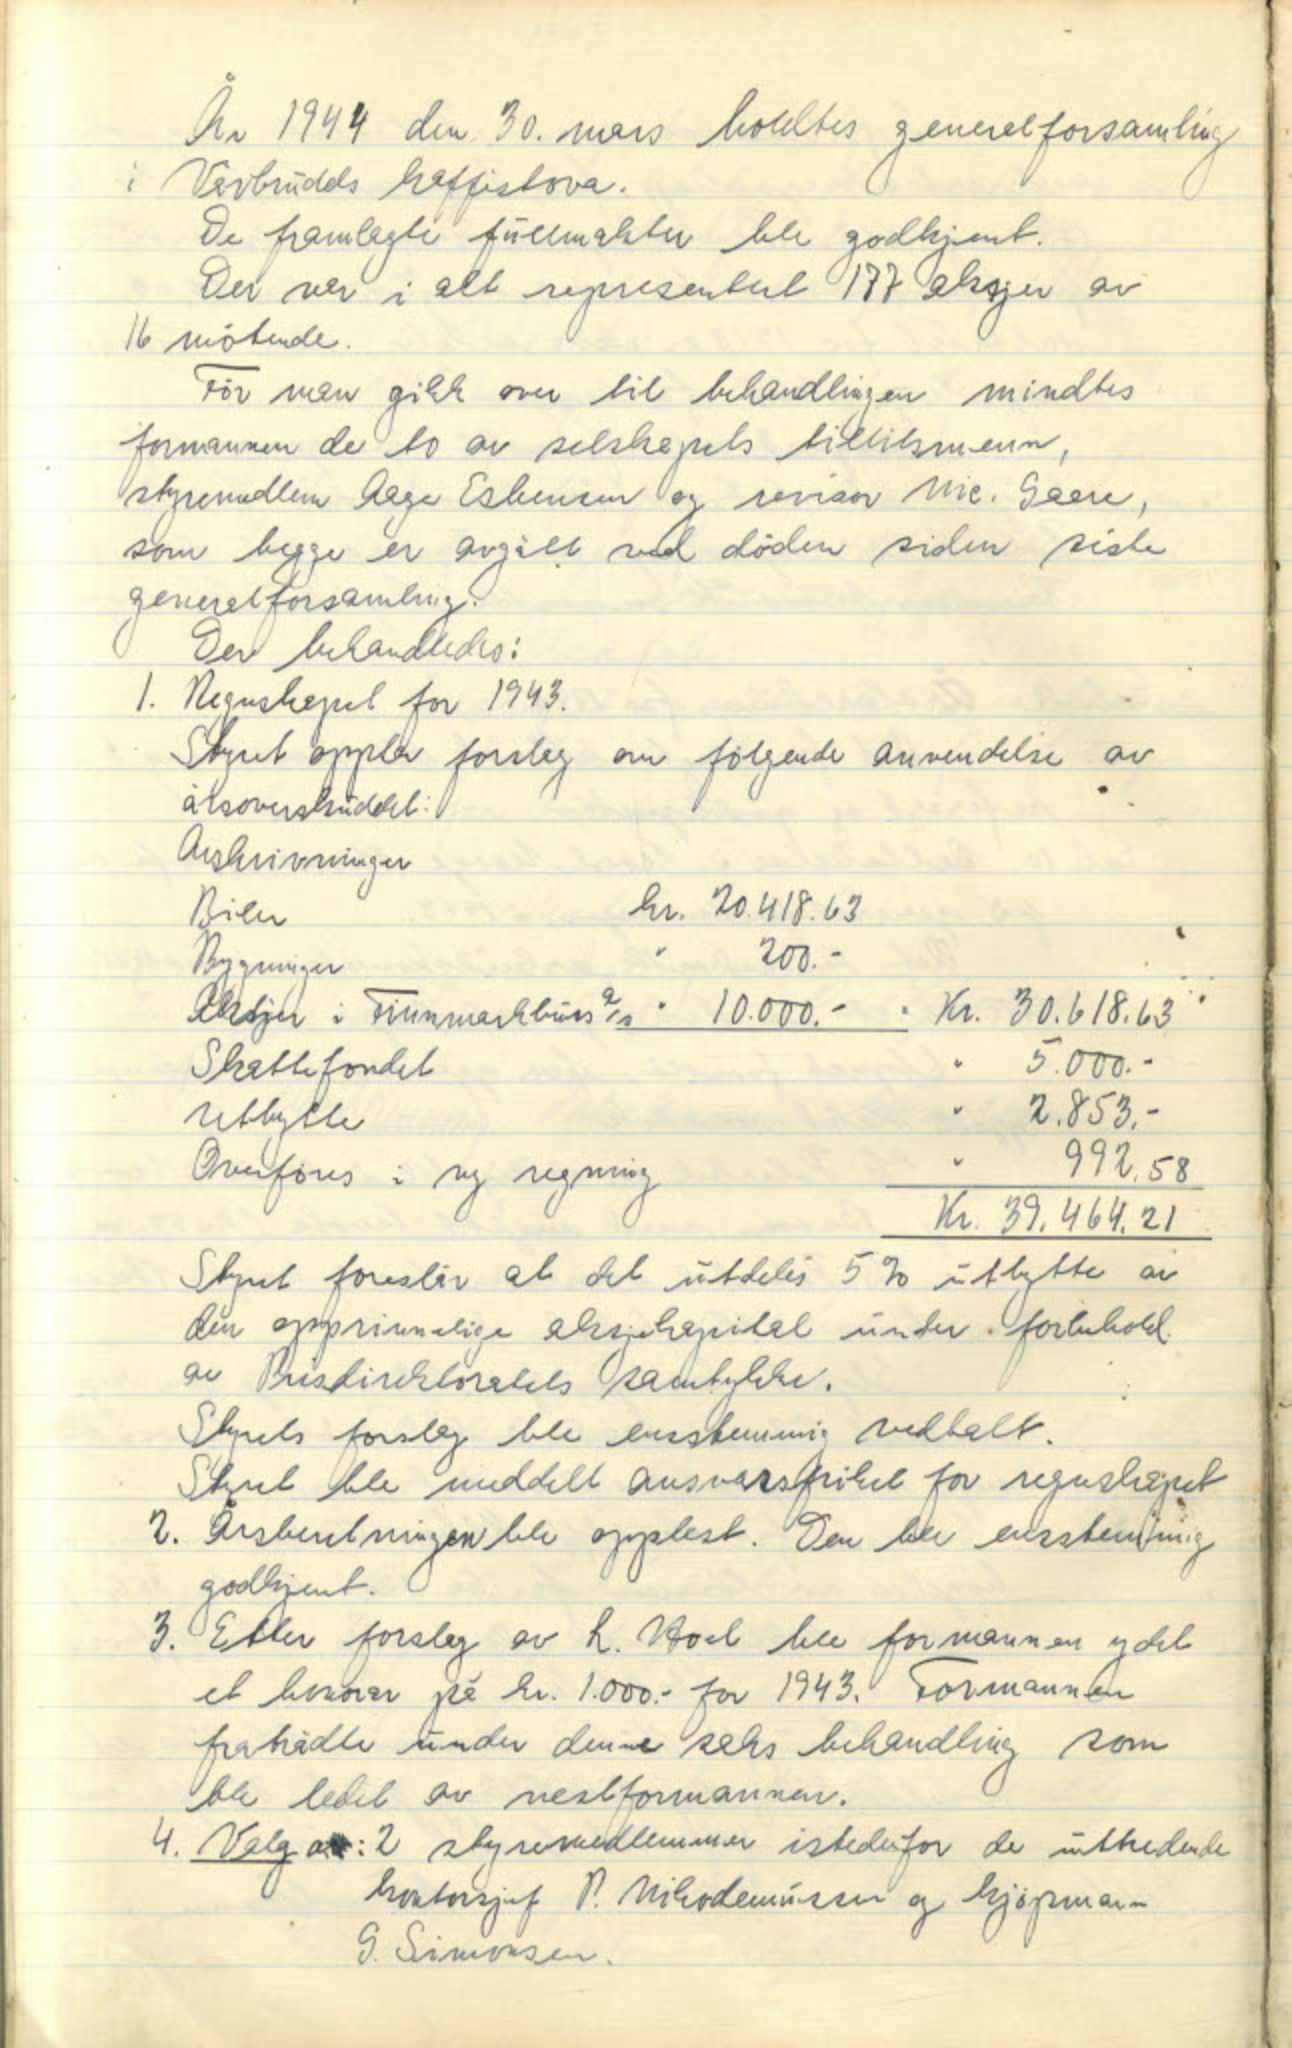 År 1944 den 30. mars holdtes generalforsamling
i Varbudds kaffistova.
De framlagte fullmakter ble godkjent.
Der var i alt representert 177 aksjer av
16 møtende.
Før man gikk over til behandlingen mindtes
formannen de to av selskapets tillitsmenn,
styremedlem Aage Esbensen og revisor Nic. Gaare,
som begge er avgått ved døden siden siste
generalforsamling.
Der behandledes:
1. Regnskapet for 1943.
Styret opplev forslag om følgende anvendelse av
årsoverskuddet:
Avskrivninger
Biler kr. 20.418.63
Bygninger " 200.-
Aksjer i Finnmarkbuss a/s " 10.000.- Kr. 30.618.63
Skattefondet " 5.000.-
Utbytte " 2.853.-
Overføres i ny regning " 992.58
Kr. 39.464.21
Styret foreslår at det utdeles 5% utbytte av
den opprinnelige aksjekapital under forbehold
av Prisdirektoratets samtykke.
Styrets forslag ble enstemmig vedtatt.
Styret ble meddelt ansvarsfrihet for regnskapet
2. Årsberetningen ble opplest. Den ble enstemmig
godkjent.
3. Etter forslag av h. Hoel ble formannen ydet
et honorar på kr. 1.000.- for 1943. Formannen
fratrådte under denne saks behandling som
ble ledet av nestformannen.
4. Valg av: 2 styremedlemmer istedenfor de uttredende
kontorsjef P. Nikodemussen og kjøpmann
G. Simonsen.